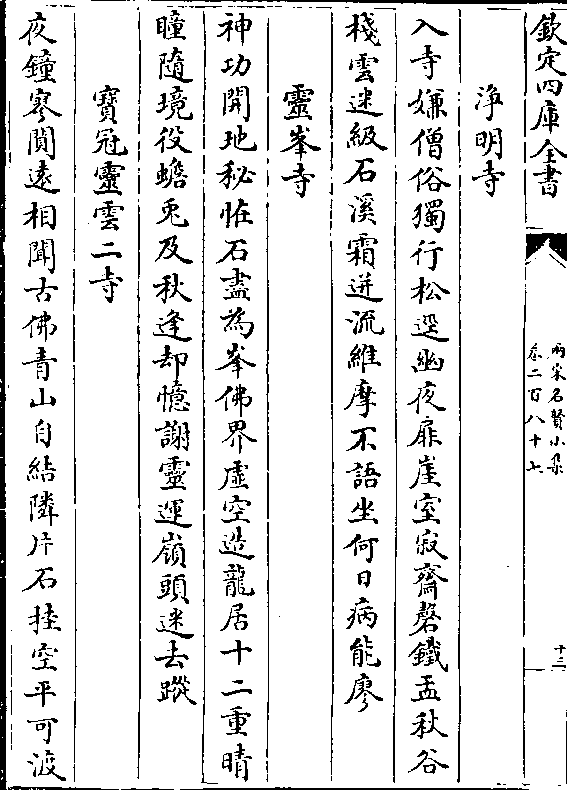 欽定四庫全書
兩宋名賢小集
卷二百八十七
十三
淨明寺
入寺嫌僧俗獨行松逕幽夜扉崖室寂齋磬鐵盂秋谷
棧雲迷級石溪霜迸流維摩不語坐何日病能廖
靈峯寺
神功開地秘恠石盡為峯佛界虛空造龍居十二重晴
瞳隨境役蟾兎及秋逢却憶謝靈運嶺頭迷去蹤
寶冠靈雲二寺
夜鐘寒閴遠相聞古佛青山自結隣片石挂空平可渡